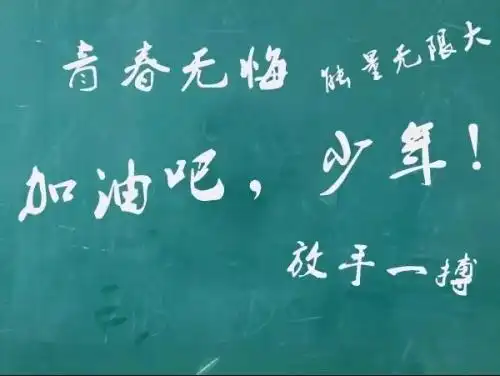 青春无悔 能量无限大
加油吧，少年！
放手一搏